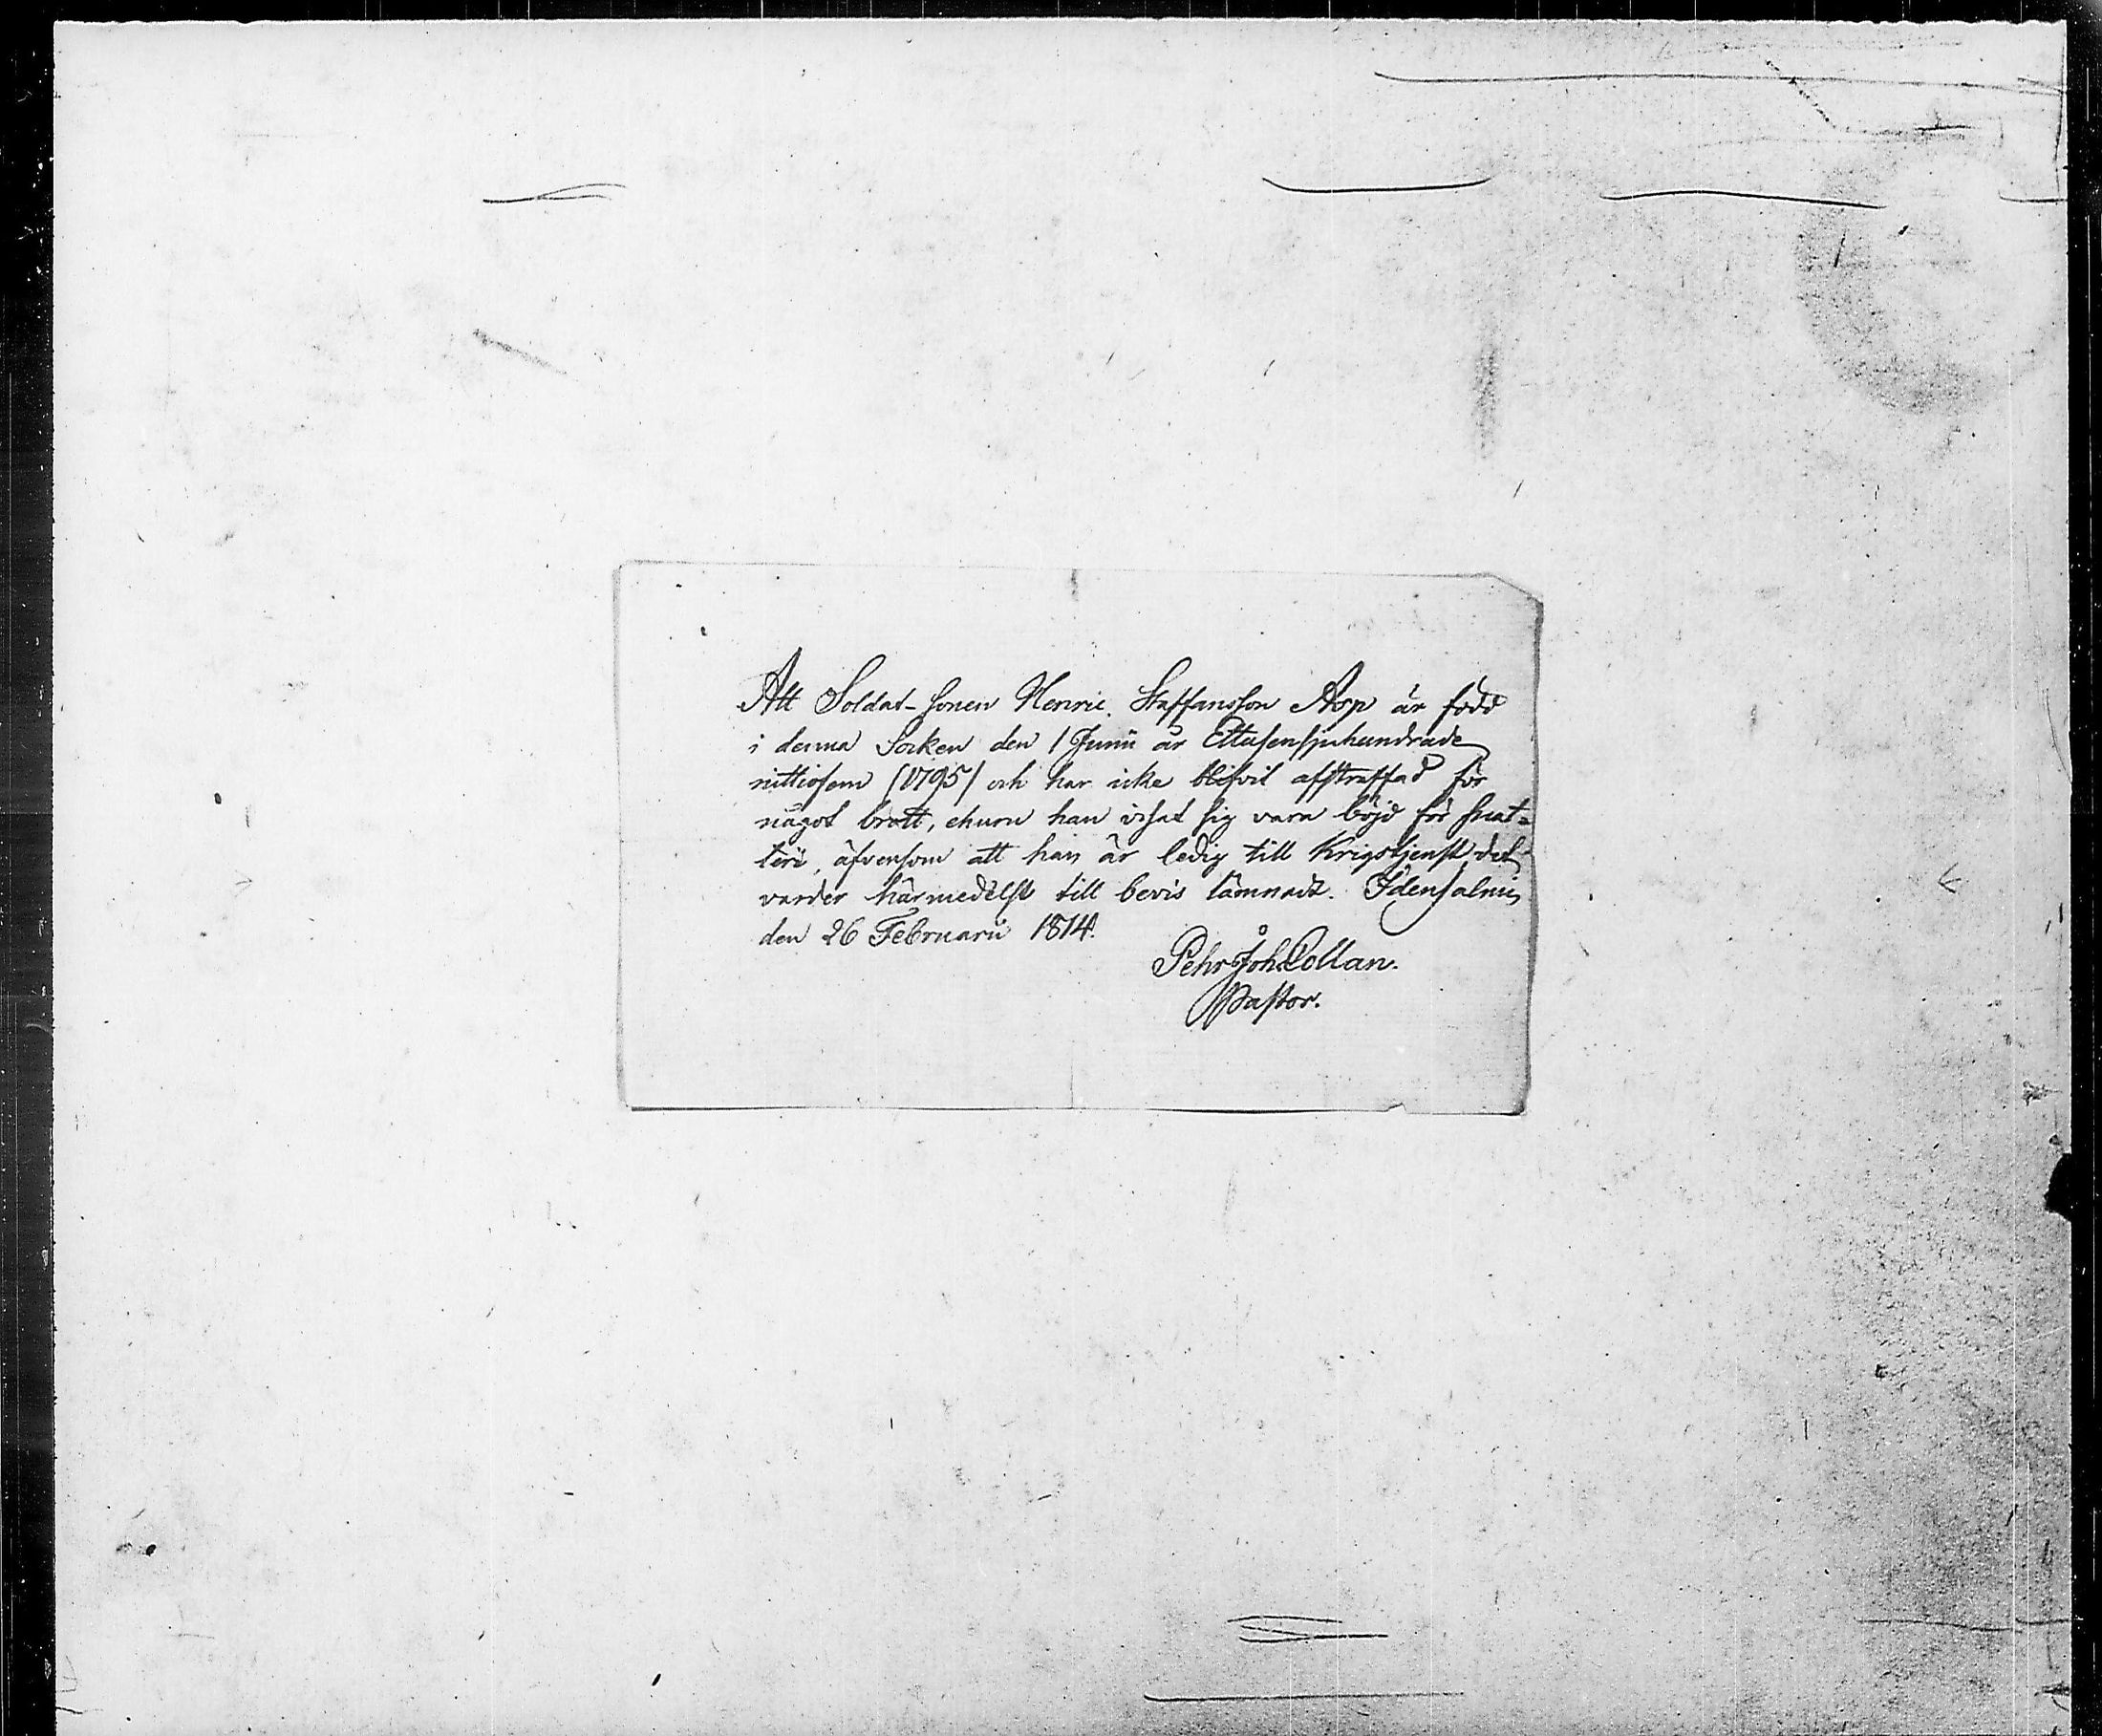 Att Soldat-sonen Henric Staffansson Asp är född
i denna Socken den 1 Junii år Ettusensjuhundrade
nittiofem (1795) och har icke blifvit afstraffad för
något brott, ehuru han visat sig vara böjd för snat-
teri, äfvensom att han är ledig till Krigstjenst, det
varder härmedelst till bevis lämnadt. Idensalmi
den 26 Februarii 1814.
Pehr Joh. Collan.
Pastor.